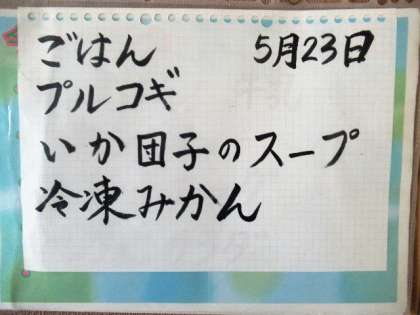 ごはん 5月23日
プルコギ
いか団子のスープ
冷凍みかん